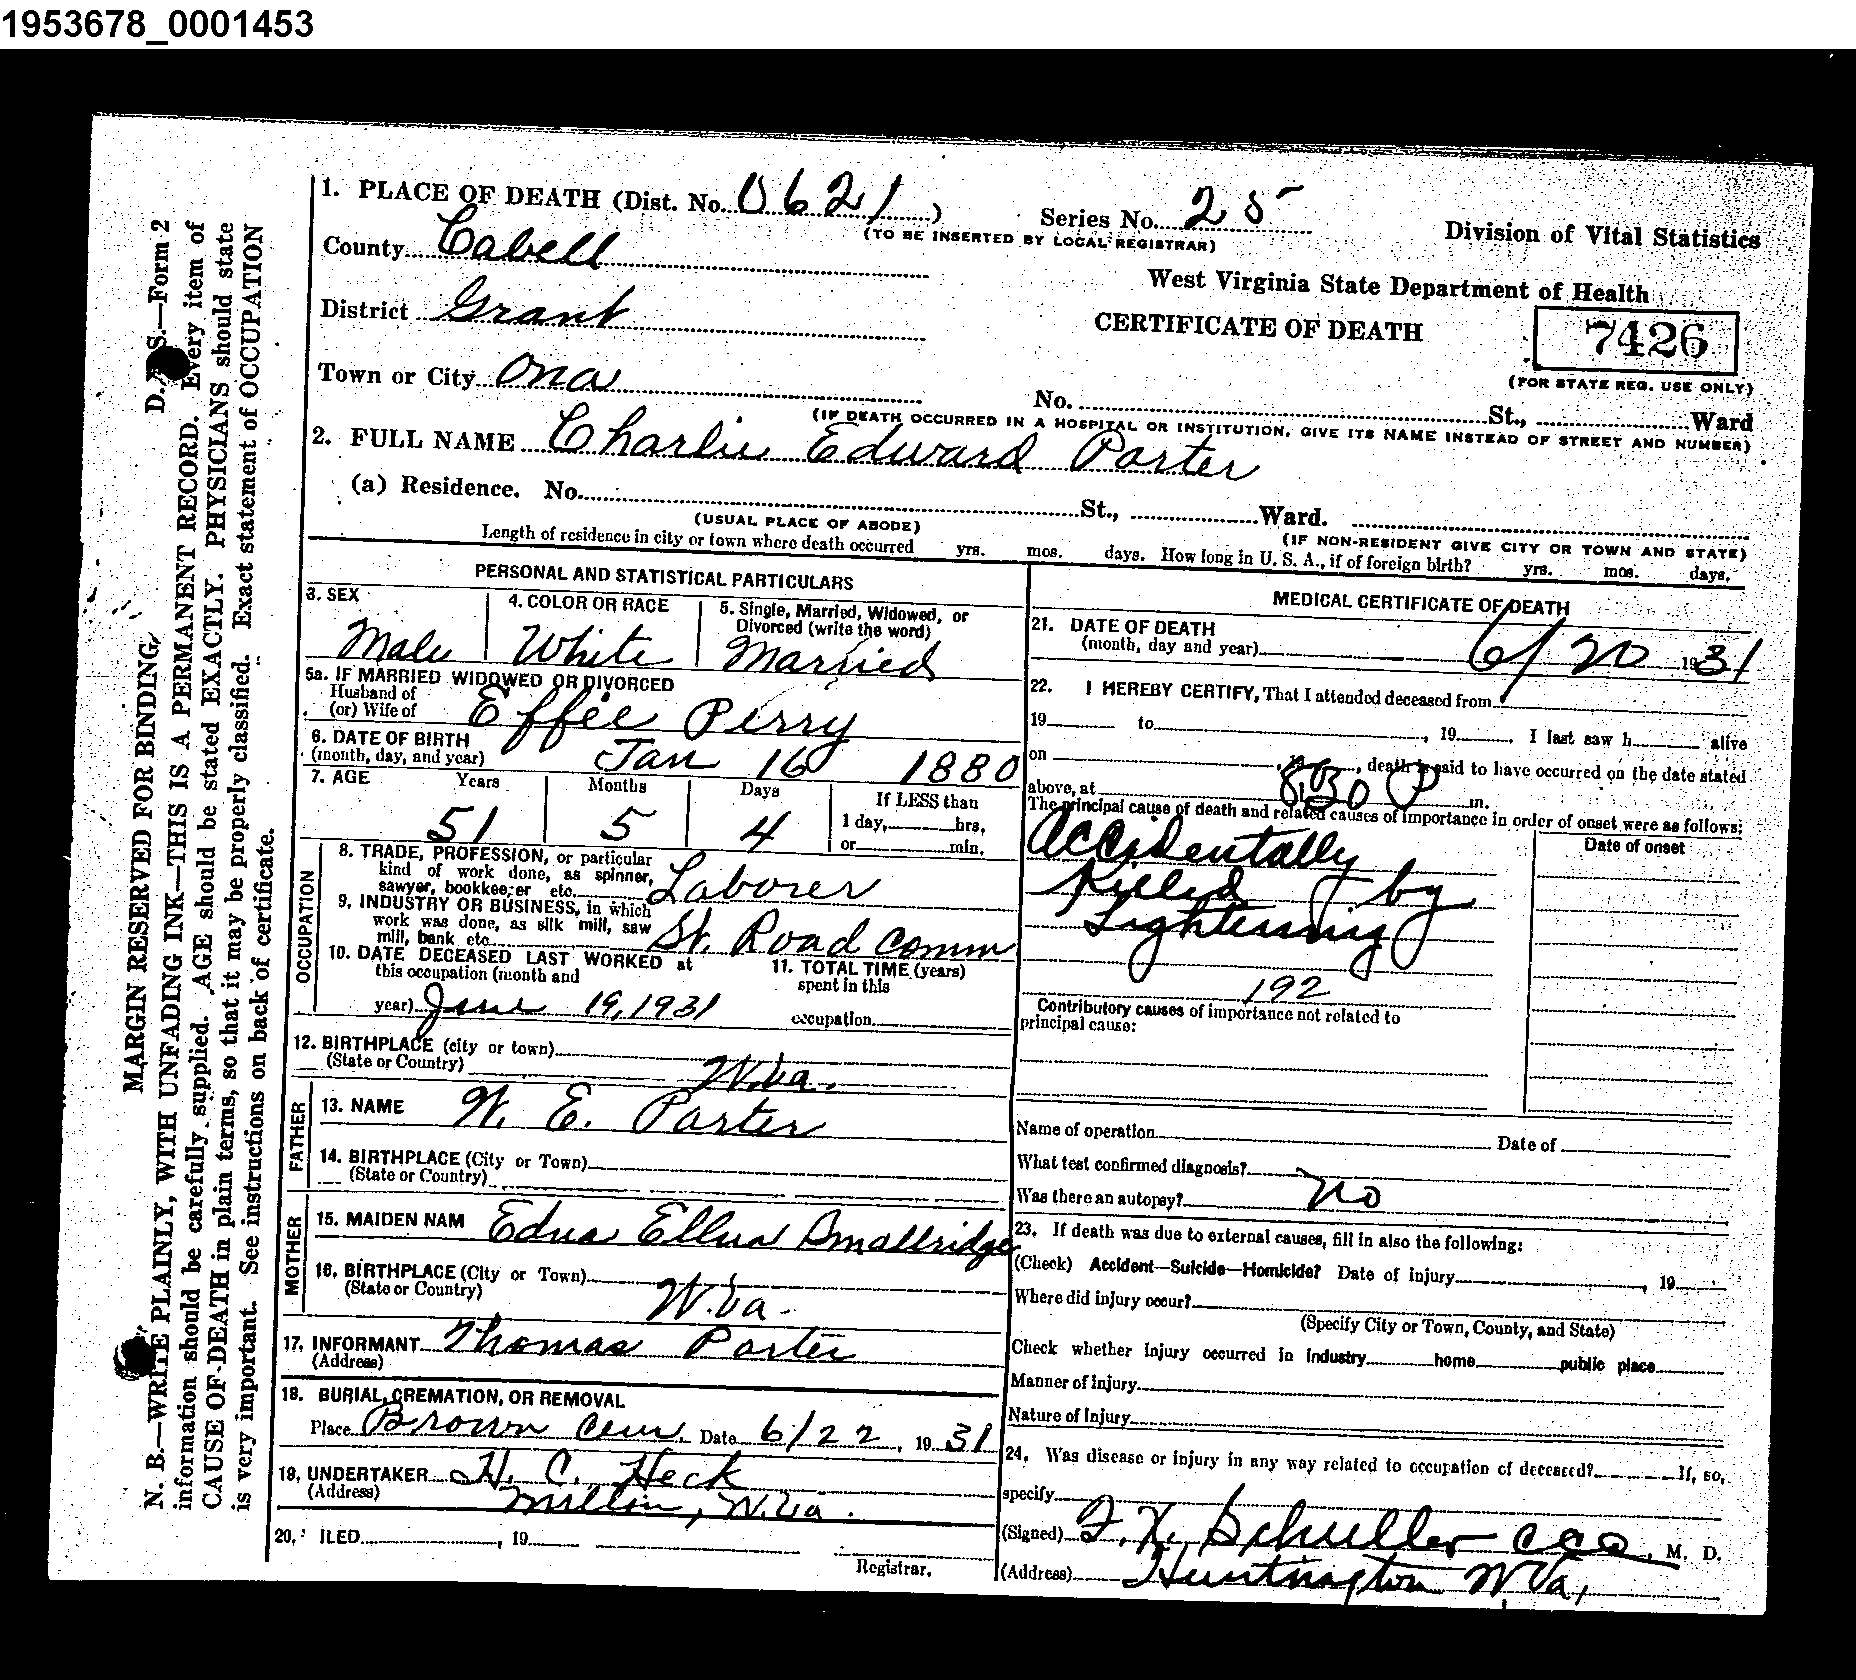 1953678_0001453
1. PLACE OF DEATH (Dist. No. 0621)
Series No. 25
(TO BE INSERTED BY LOCAL REGISTRAR)
Division of Vital Statistics
County Cabell
West Virginia State Department of Health
District Grant
CERTIFICATE OF DEATH
7426
(FOR STATE REG. USE ONLY)
Town or City Ona
No. St., Ward
(IF DEATH OCCURRED IN A HOSPITAL OR INSTITUTION, GIVE ITS NAME INSTEAD OF STREET AND NUMBER)
2. FULL NAME Charlie Edward Porter
(a) Residence. No. St., Ward.
(USUAL PLACE OF ABODE)
(IF NON-RESIDENT GIVE CITY OR TOWN AND STATE)
Length of residence in city or town where death occurred yrs. mos. days. How long in U. S. A., if of foreign birth? yrs. mos. days.
PERSONAL AND STATISTICAL PARTICULARS
3. SEX
Male
4. COLOR OR RACE
White
5. Single, Married, Widowed, or
Divorced (write the word)
Married
5a. IF MARRIED WIDOWED OR DIVORCED
Husband of
(or) Wife of Effie Perry
6. DATE OF BIRTH
(month, day, and year) Jan 16 1880
7. AGE Years Months Days If LESS than
51 5 4 1 day, hrs.
or min.
OCCUPATION
8. TRADE, PROFESSION, or particular
kind of work done, as spinner,
sawyer, bookkeeper etc. Laborer
9. INDUSTRY OR BUSINESS, in which
work was done, as silk mill, saw
mill, bank etc. St. Road Comm
10. DATE DECEASED LAST WORKED at
this occupation (month and
year) June 19, 1931
11. TOTAL TIME (years)
spent in this
occupation
12. BIRTHPLACE (city or town)
(State or Country) W.Va.
FATHER
13. NAME W. E. Porter
14. BIRTHPLACE (City or Town)
(State or Country)
MOTHER
15. MAIDEN NAM Edna Ellua Smallridge
16. BIRTHPLACE (City or Town)
(State or Country) W.Va.
17. INFORMANT Thomas Porter
(Address)
18. BURIAL, CREMATION, OR REMOVAL
Place Brown Cem. Date 6/22, 1931
19. UNDERTAKER H. C. Heck
(Address) Milton, W.Va.
20. ILED , 19
Registrar.
MEDICAL CERTIFICATE OF DEATH
21. DATE OF DEATH
(month, day and year) 6/20 1931
22. I HEREBY CERTIFY, That I attended deceased from
19 to , 19 . I last saw h alive
on , death is said to have occurred on the date stated
above, at 8:30 P m.
The principal cause of death and related causes of importance in order of onset were as follows:
Date of onset
Accidentally
Killed by
Lightening
192
Contributory causes of importance not related to
principal cause:
Name of operation Date of
What test confirmed diagnosis?
Was there an autopsy? No
23. If death was due to external causes, fill in also the following:
(Check) Accident—Suicide—Homicide? Date of injury , 19
Where did injury occur?
(Specify City or Town, County, and State)
Check whether injury occurred in industry home public place
Manner of injury
Nature of injury
24. Was disease or injury in any way related to occupation of deceased? If, so,
specify
(Signed) Schuller M. D.
(Address) Huntington W Va,
MARGIN RESERVED FOR BINDING D. S.—Form 2
N. B.—WRITE PLAINLY, WITH UNFADING INK—THIS IS A PERMANENT RECORD. Every item of
information should be carefully supplied. AGE should be stated EXACTLY. PHYSICIANS should state
CAUSE OF DEATH in plain terms, so that it may be properly classified. Exact statement of OCCUPATION
is very important. See instructions on back of certificate.